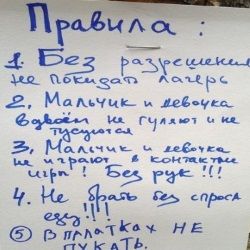 Правила :
1. Без разрешения
не покидать лагерь
2. Мальчик и девочка
вдвоём не гуляют и не
тусуются
3. Мальчик и девочка
не играют в контактн
игры! Без рук!!!
4. Не брать без спроса
еду!!!
5 В ПАЛАТКАХ НЕ
ПУКАТЬ.